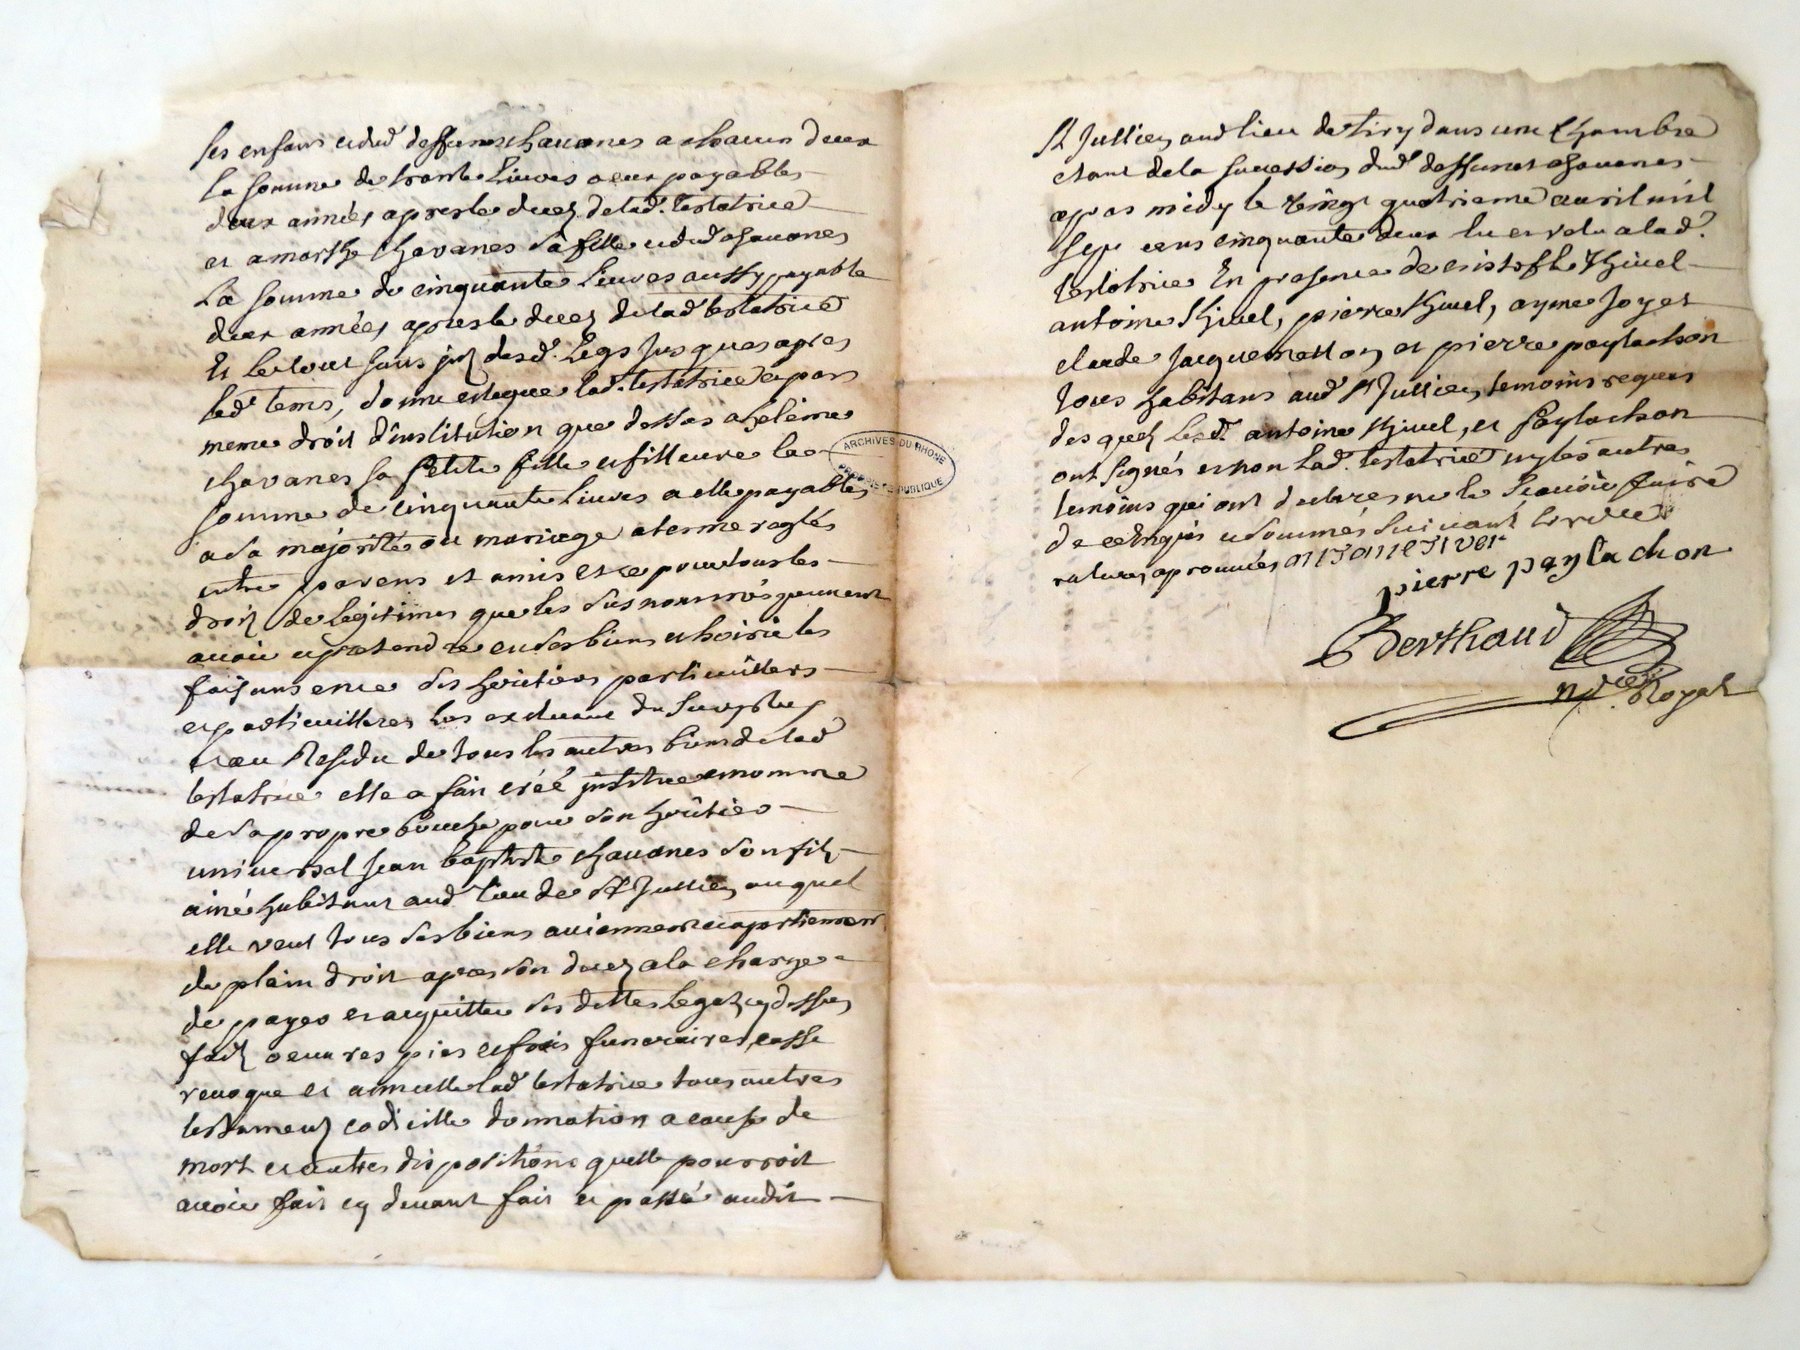 ses enfans et dud. deffunt chavanes a chacun deux
la somme de trante Livres a eux payables
deux années apres le decez de lad. testatrice
et a marthe chavanes sa fille et dud chavanes
La somme de cinquante Livres aussy payable
deux années apres le decez de lad testatrice
Et le tout sans desd. Legs jusques apres
led tems, donne et legue lad. testatrice et par
meme droit d'institution que dessus a helème
chavanes sa petite fille et filleure la
somme de cinquante Livres a elle payables
a sa majorité ou mariage a terme reglés
entre parens et amis et ce pour tous les
droit de legitimes que les sus nommés peuvent
avoir et pretendre en ses biens et hoirie les
faisans en ce ses heritiers particuillers
et particuilleres les excluant du surplus
et au Residu de tous les autres biens de lad
testatrice elle a fait créé institue et nomme
de sa propre bouche pour son héritier
universel jean baptiste chavanes son filz
ainé habitant aud lieu de St Jullien auquel
elle veut tous ses biens aviennent et apartiennent
de plain droit apres son decez a la charge
de payer et acquitter ses dettes Legatz cy dessus
faitz oeuvres pies et frais funeraires casse
revoque et annulle lad testatrice tous autres
testamentz codicille donnation a cause de
mort et autres dispositions quelle pourroit
avoir fait cy devant fait et passé audit
ARCHIVES DU RHONE
PROPRIETE PUBLIQUE
St Jullien aud lieu de tiry dans une Chambre
etant de la succession dud deffunt chavanes
apres midy le vingt quatrieme avril mil
sept cens cinquante deux lu et relu a lad.
testatrice En presence de cristofle thivel
antoine thivel, pierre thivel, ayme joyet
claude jacquemetton et pierre paylachon
tous habitans aud St Jullien temoins requis
des quelz Lesd. antoine thivel, et paylachon
ont signés et non lad. testatrice ny les autres
temoins qui ont declarés ne le sçavoir faire
de ce enquis et sommés suivant
ratures aprouvées
pierre paylachon
Berthaud
Royal